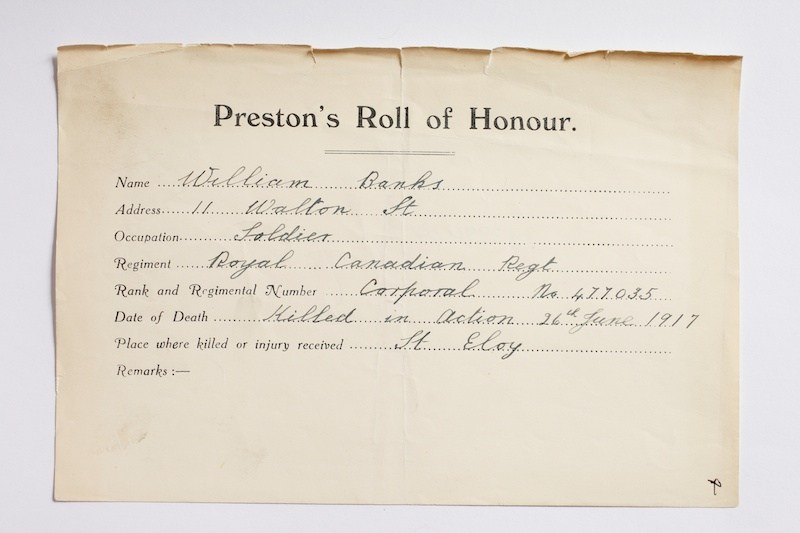 Preston's Roll of Honour.
Name ....William Banks
Address.....11 Walton St
Occupation........Soldier
Regiment .....Royal Canadian Regt
Rank and Regimental Number .......Corporal No 477035
Date of Death .........Killed in Action 26th June 1917
Place where killed or injury received .........St Eloy
Remarks :—